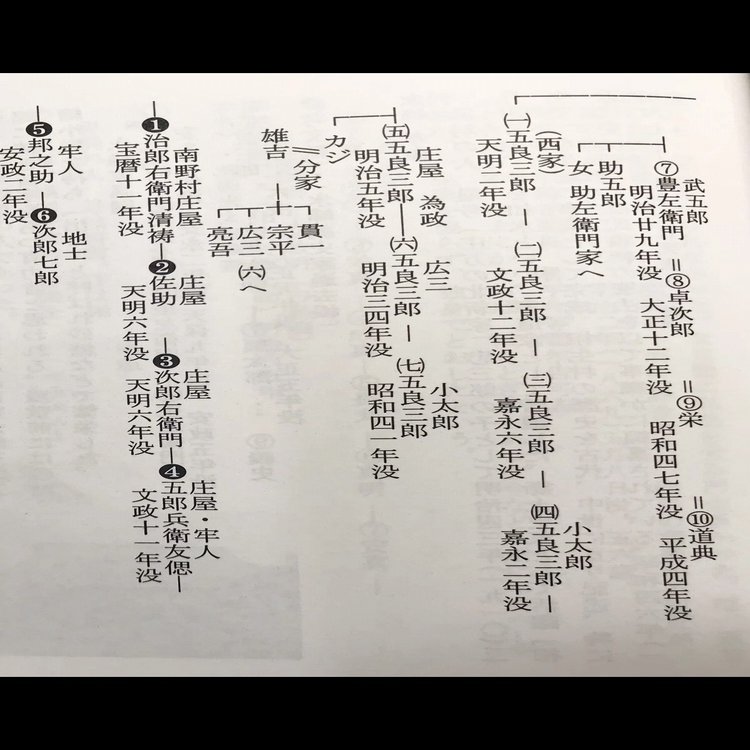 武五郎
⑦豊左衛門 =⑧卓次郎 =⑨栄 =⑩道典
明治廿九年没 大正十二年没 昭和四七年没 平成四年没
助五郎
女 助左衛門家へ
小太郎
(西家)
㈠五良三郎 ― ㈡五良三郎 ― ㈢五良三郎 ― ㈣五良三郎 ―
天明二年没 文政十二年没 嘉永六年没 嘉永二年没
庄屋 為政 広三 小太郎
㈤五良三郎 ― ㈥五良三郎 ― ㈦五良三郎
明治五年没 明治三四年没 昭和四一年没
カジ
分家 貫一
雄吉 宗平
広三 ㈥へ
亮吾
南野村庄屋 庄屋 庄屋 庄屋・牢人
❶治郎右衛門清祷 ― ❷佐助 ― ❸次郎右衛門 ― ❹五郎兵衛友偲 ―
宝暦十一年没 天明六年没 天明六年没 文政十一年没
牢人 地士
❺邦之助 ― ❻次郎七郎
安政二年没